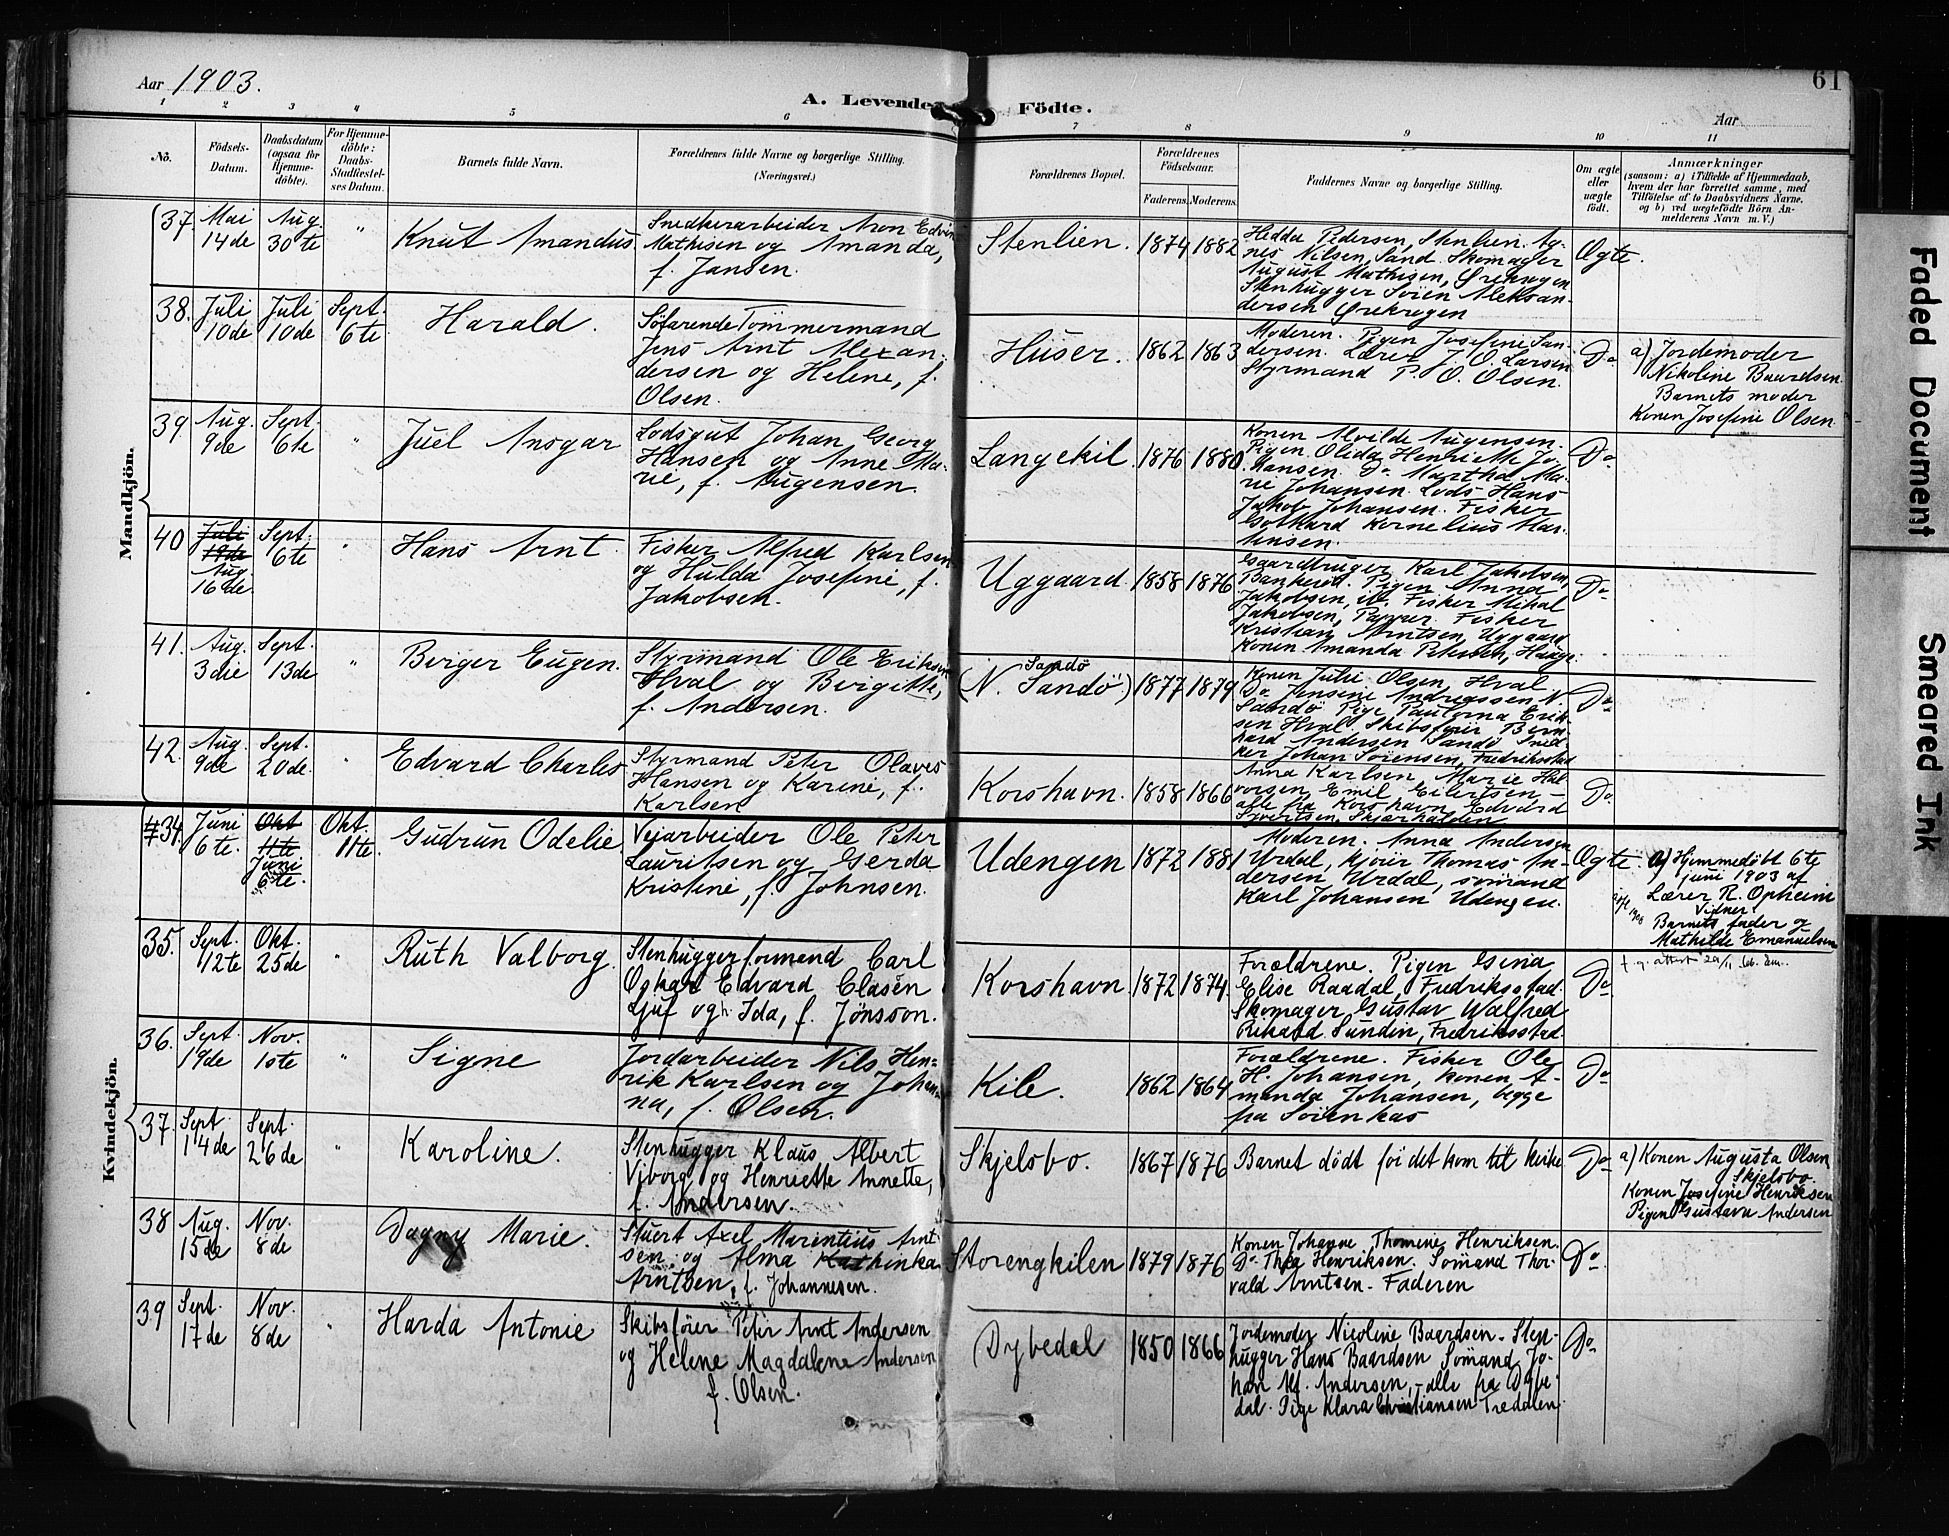 Aar 1903.
A. Levende Födte.
61
Aar
1 2 3 4 5 6 7 8 9 10 11
No.
Födsels-Datum.
Daabsdatum (ogsaa for Hjemme-döbte).
For Hjemme-döbte: Daabs-Stadfæstel-ses Datum.
Barnets fulde Navn.
Forældrenes fulde Navne og borgerlige Stilling.
(Næringsvei.)
Forældrenes Bopæl.
Forældrenes Födselsaar.
Faderens. Moderens.
Faddernes Navne og borgerlige Stilling.
Om ægte eller uægte födt.
Anmærkninger
(saasom: a) i Tilfælde af Hjemmedaab,
hvem der har forrettet samme, med
Tilföielse af to Daabsvidners Navne.
og b) ved uægtefödte Börn An-
melderens Navn m. V.)
Mandkjön.
37. Mai 14de Aug. 30te " Knut Amandus
Snedkerarbeider Aron Edvin
Mathisen og Amanda,
f. Jansen.
Stenlien. 1874 1882
Hedda Pedersen, Stenlien. Ag-
nes Nilsen, Sand. Skomager
August Mathisen, Ørekrogen
Stenhugger Sören Aleksan-
dersen Ørekrogen
Ægte.
38. Juli 10de Juli 10de Sept. 6te Harald.
Söfarende Tömmermand
Jens Arnt Alexan-
dersen og Helene, f.
Olsen.
Huser. 1862 1863
Moderen. Pigen Josefine San-
dersen. Lærer J. O. Larsen
Styrmand P. O. Olsen.
Do
a) Jordemoder
Nikoline Baardsen
Barnets moder
Konen Josefine Olsen
39. Aug. 9de Sept. 6te " Juel Ansgar
Lodsgut Johan Georg
Hansen og Anne Ma-
rie, f. Augensen.
Langekil. 1876 1880
Konen Alvilde Augensen.
Pigen Olida Henriette Jo-
hansen. Do Martha Ma-
rie Johansen. Lods Hans
Jakob Johansen. Fisker
Gothard Kornelius Mar-
tinsen.
Do
40 Juli 19de Aug. 16de Sept. 6te " Hans Arnt.
Fisker Alfred Karlsen
og Hulda Josefine, f.
Jakobsen.
Uggaard 1858 1876
Gaardbruger Karl Jakobsen,
Bankerød. Pigen Anna
Jakobsen, ib. Fisker Mihal
Jakobsen, Papper. Fisker
Kristian Arntsen, Uggaard
Konen Amanda Petersen, Hauge.
Do
41. Aug. 3die Sept. 13de " Birger Eugen.
Styrmand Ole Eriksen
Hval og Birgitte,
f. Andersen.
Sandö
(N. Sandö) 1877 1879
Konen Julie Olsen, Hval
Do Jensine Andreassen N.
Sandö Pige Paulina Erik-
sen Hval Skibsförer Bern-
hard Andersen Sandö Sned-
ker Johan Sörensen, Fredriksstad
Do
42. Aug. 9de Sept. 20de. " Edvard Charles
Styrmand Peter Olaves
Hansen og Karine, f.
Karlsen
Korshavn. 1858 1866
Anna Karlsen, Marie Hal-
vorsen Emil Eilertsen,
alle fra Korshavn, Edvard
Syvertsen Skjærhalden
Do
Kvindekjön.
#34. Juni 6te. Okt. 11te Juni 6te. Okt. 11te. Gudrun Odelie
Veiarbeider Ole Peter
Lauritsen og Gerda
Kristine, f. Johnsen.
Udengen 1872 1881
Moderen. Anna Andersen
Urdal, kjöier Thomas An-
dersen Urdal, sömand
Karl Johansen Udengen.
Ægte.
a) Hjemmedöbt 6te
juni 1903 af
Lærer R. Opheim
Vidner
Barnets fader og
Mathilde Emanuelsen
35. Sept. 12te Okt. 25de " Ruth Valborg
Stenhuggerformand Carl
Oskar Edvard Clasen
Ljuf og Ida, f. Jönsson.
Korshavn 1872 1874
Forældrene. Pigen Gina
Elise Raadal, Fredriksstad
Skomager Gustav Walfred
Rikard Sundin, Fredriksstad
Do
36. Sept. 19de Nov. 1ste " Signe
Jordarbeider Nils Hen-
rik Karlsen og Johan-
na, f. Olsen.
Kile. 1862 1864
Forældrene. Fisker Ole
H. Johansen, konen A-
manda Johansen, begge
fra Sörenkas
Do
37. Sept. 14de Sept. 26de " Karoline.
Stenhugger Klaus Albert
Viborg og Henriette Annette,
f. Andersen.
Skjelsbo. 1867 1876
Barnet dödt för det kom til kirke
Do
a) Konen Augusta Olsen
Skjelsbo.
Konen Josefine Henriksen
Pigen Gustava Andersen
38 Aug. 15de Nov. 8de Dagny Marie.
Stuert Axel Marentius Arnt-
sen og Alma Kathinka
Arntsen, f. Johannesen.
Storengkilen 1879 1876
Konen Johanne Thomine Henriksen.
Do Thea Henriksen. Sömand Thor-
vald Arntsen. Faderen
Do
39 Sept. 17de Nov. 8de " Harda Antonie
Skibsförer Peter Arnt Andersen
og Helene Magdalene Andersen
f. Olsen.
Dybedal 1850 1866
Jordemoder Nicoline Baardsen. Sten-
hugger Hans Baardsen Sömand Jo-
han M. Andersen, - alle fra Dybe-
dal. Pige Klara Christiansen Tredalen.
Do
Faded Document
Smeared Ink